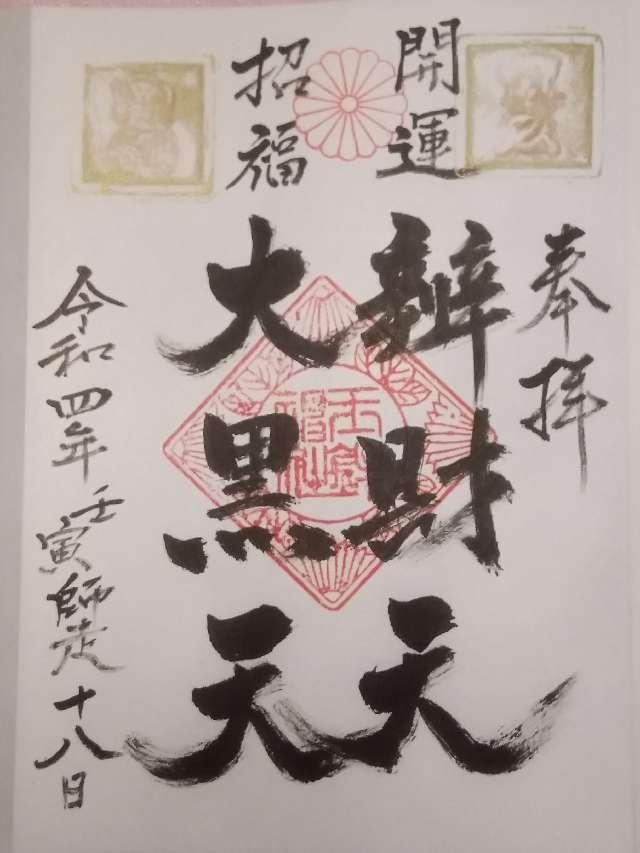 奉拝
開運
招福
辨財天
大黒天
令和四年壬寅師走十八日